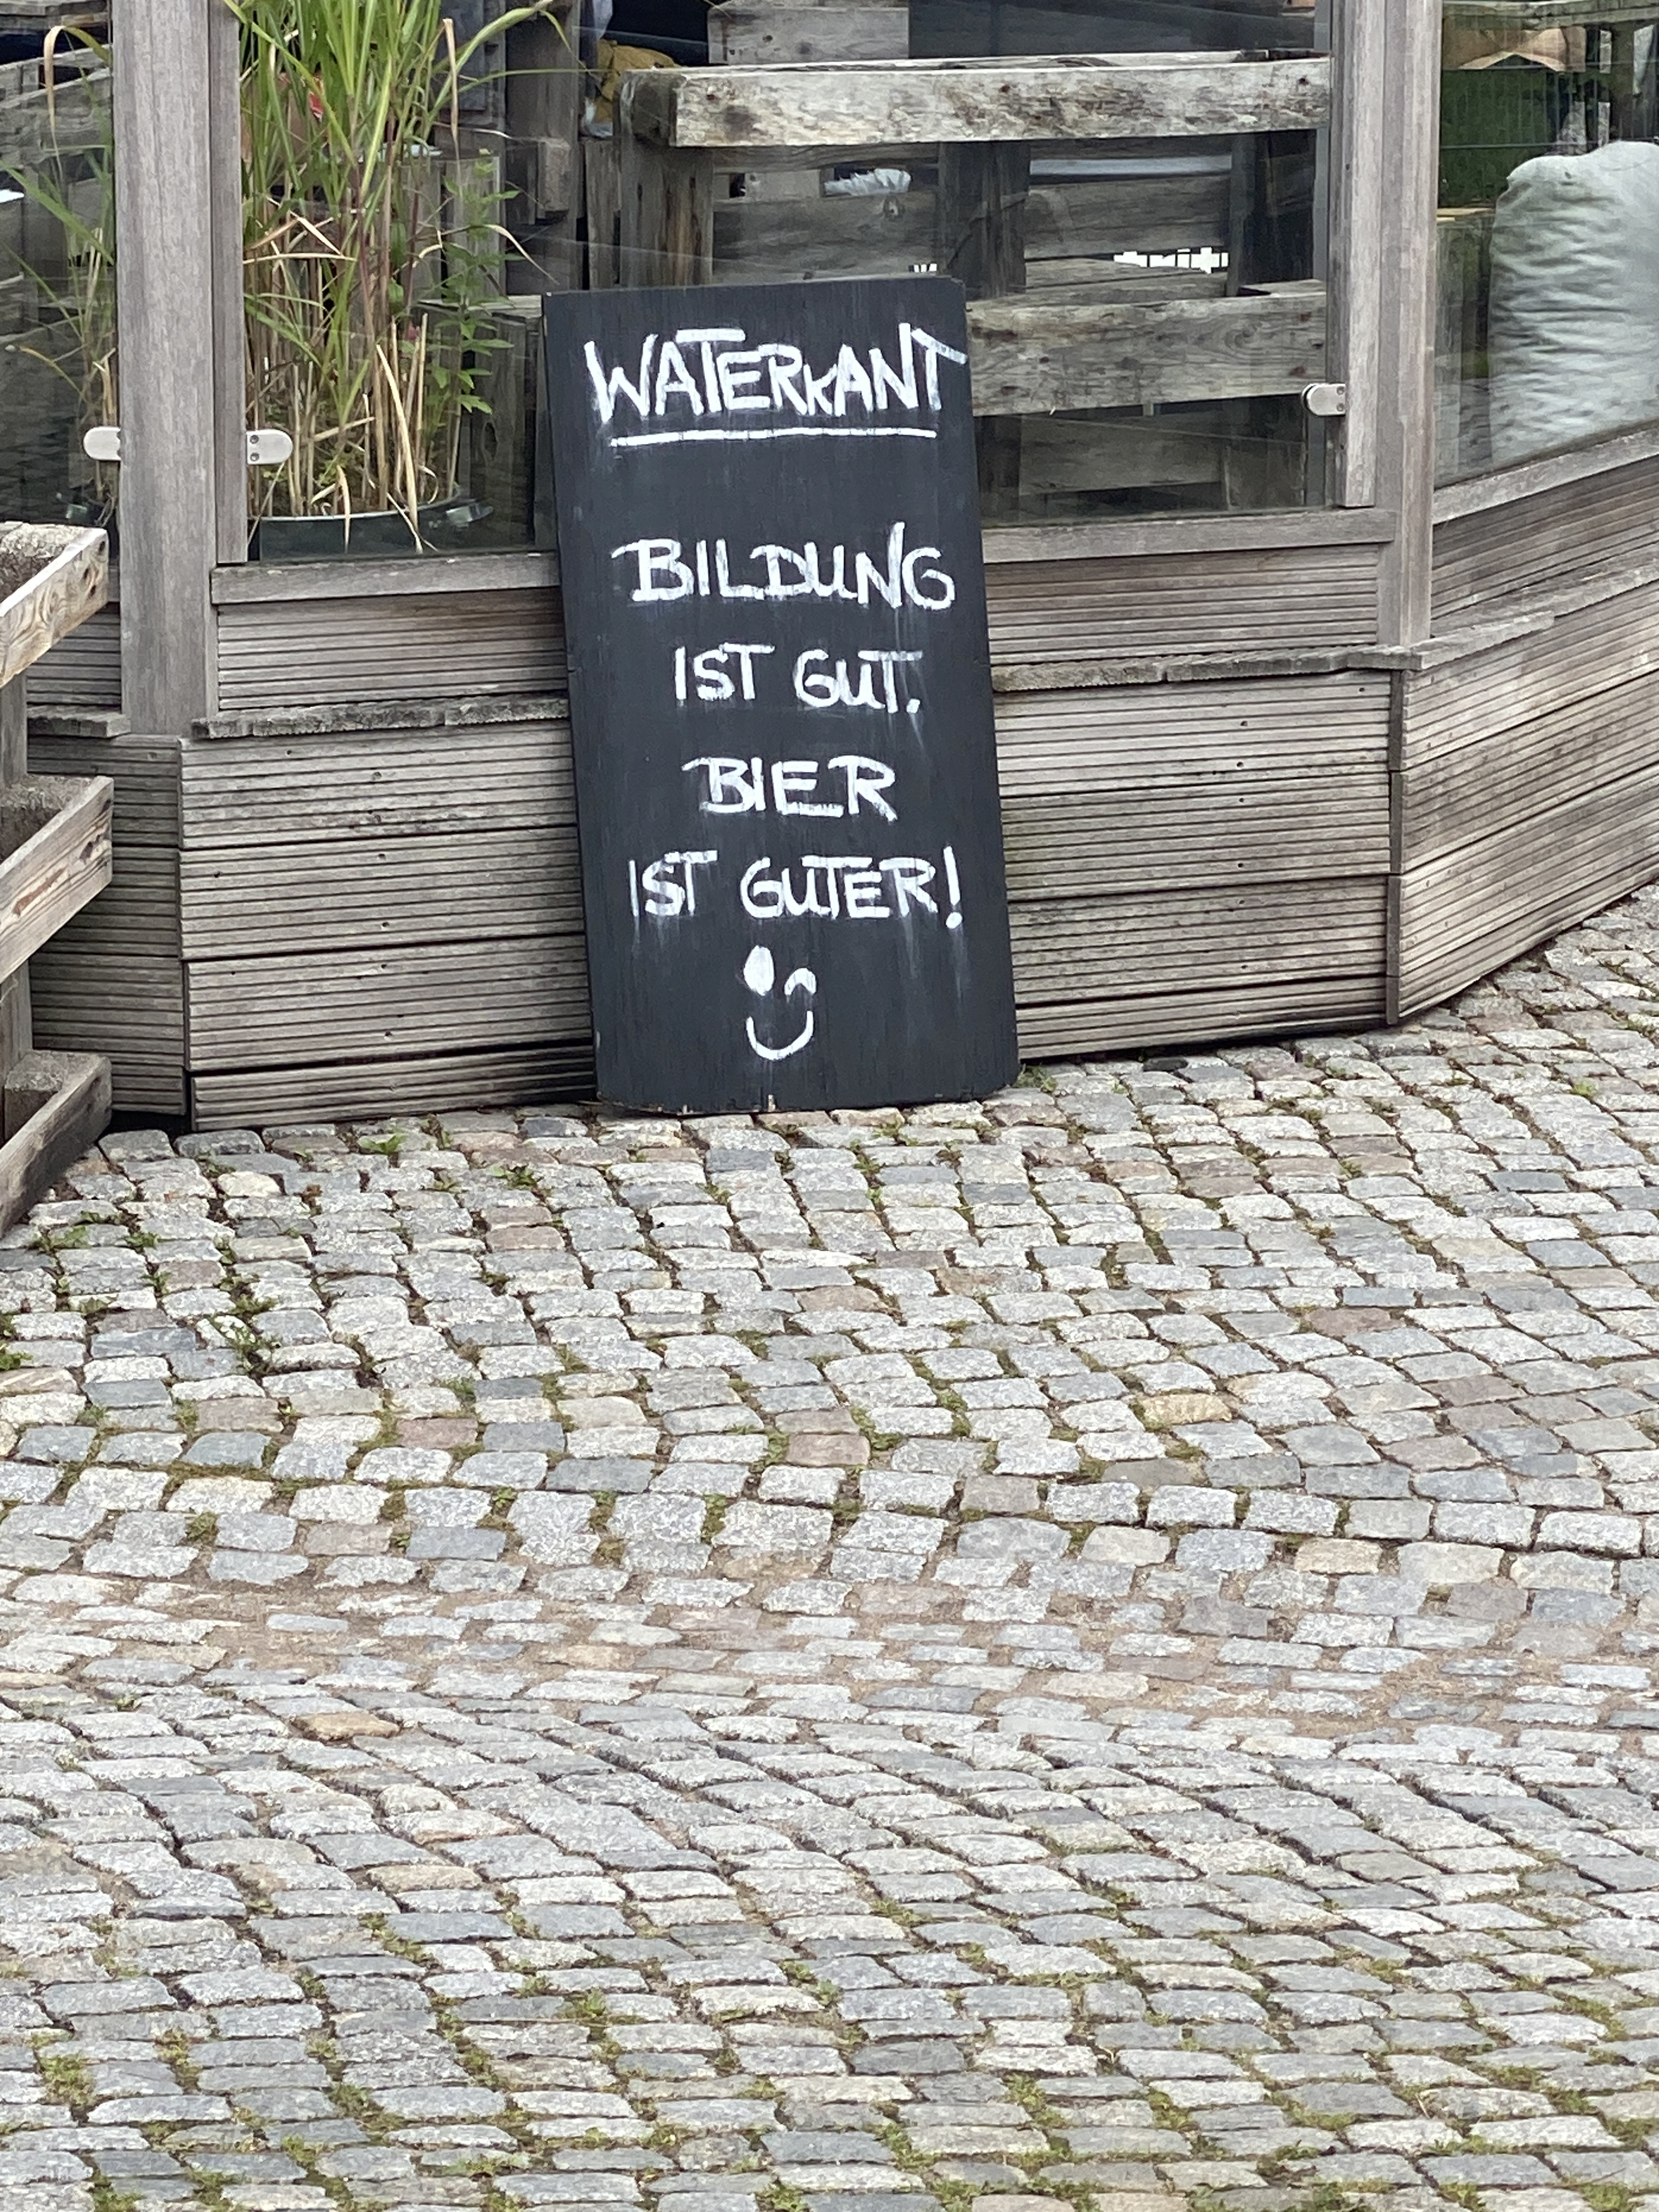 WATERKANT
BILDUNG
IST GUT.
BIER
IST GUTER!